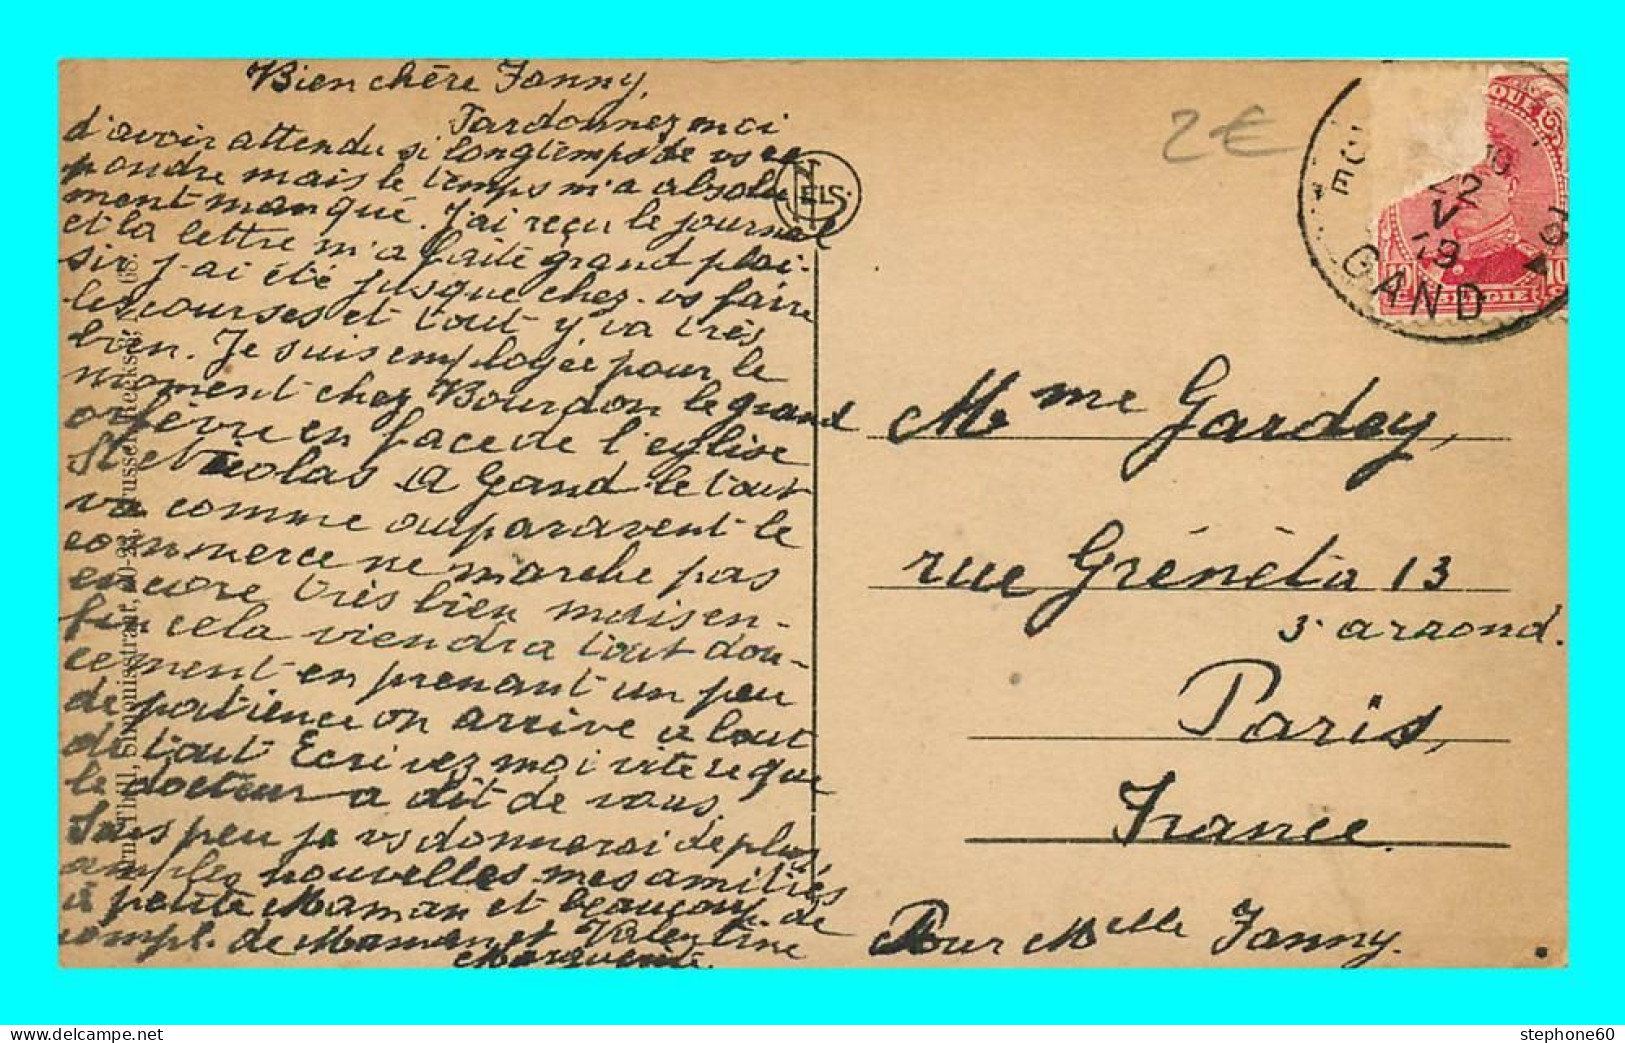 Bien chère Fanny,
Pardonnez moi
d'avoir attendu si longtemps de vs ré
pondre mais le temps m'a absolu
ment manqué. J'ai reçu le journal
et la lettre m'a faite grand plai-
sir j-ai été jusque chez-vs faire
les courses et tout y va très
bien. Je suis employée pour le
moment chez Bourdon le grand
orfèvre en face de l'eglise
St Nicolas A Gand le tout
va comme auparavent le
commerce ne marche pas
encore très bien mais en-
fin cela viendra tout dou-
cement en prenant un peu
de patience on arrive a bout
de tout Ecrivez moi vite ce que
le docteur a dit de vous.
Sous peu je vs donnerai de plus
amples nouvelles mes amitiés
à petite Maman et beaucoup de
compl. de Maman et Valentine
Marguerite.
NELS
2€
GAND
22
V
19
BELGIE
10
Mme Gardey,
rue Grénéta 13
3 arrond.
Paris,
France.
Pour Melle Fanny.
Ern. Thill, Bruxelles
stephone60